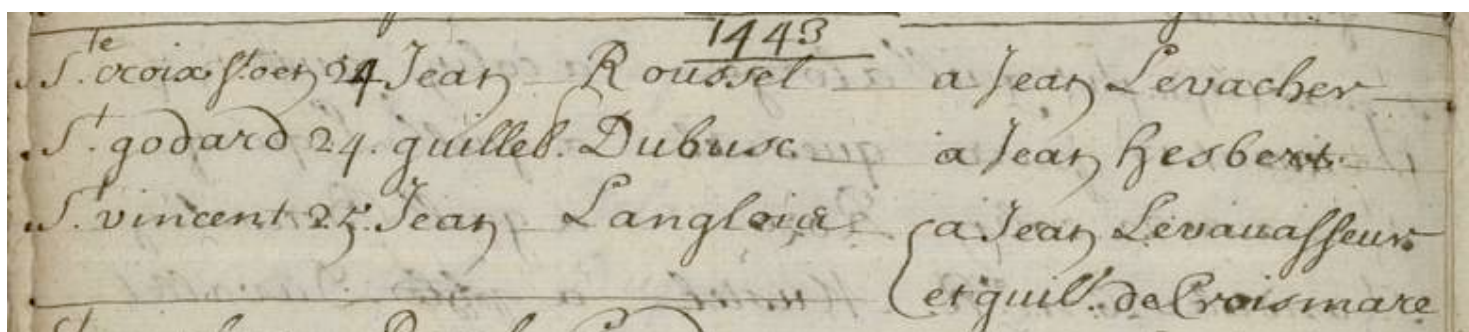 1443
Ste croix St oen 24 Jean Roussel a Jean Levacher
St. godard 24. guilleb. Dubusc a Jean hesbert
St. vincent 25. Jean Langlois a Jean Levauasseur
et guill. de Croismare